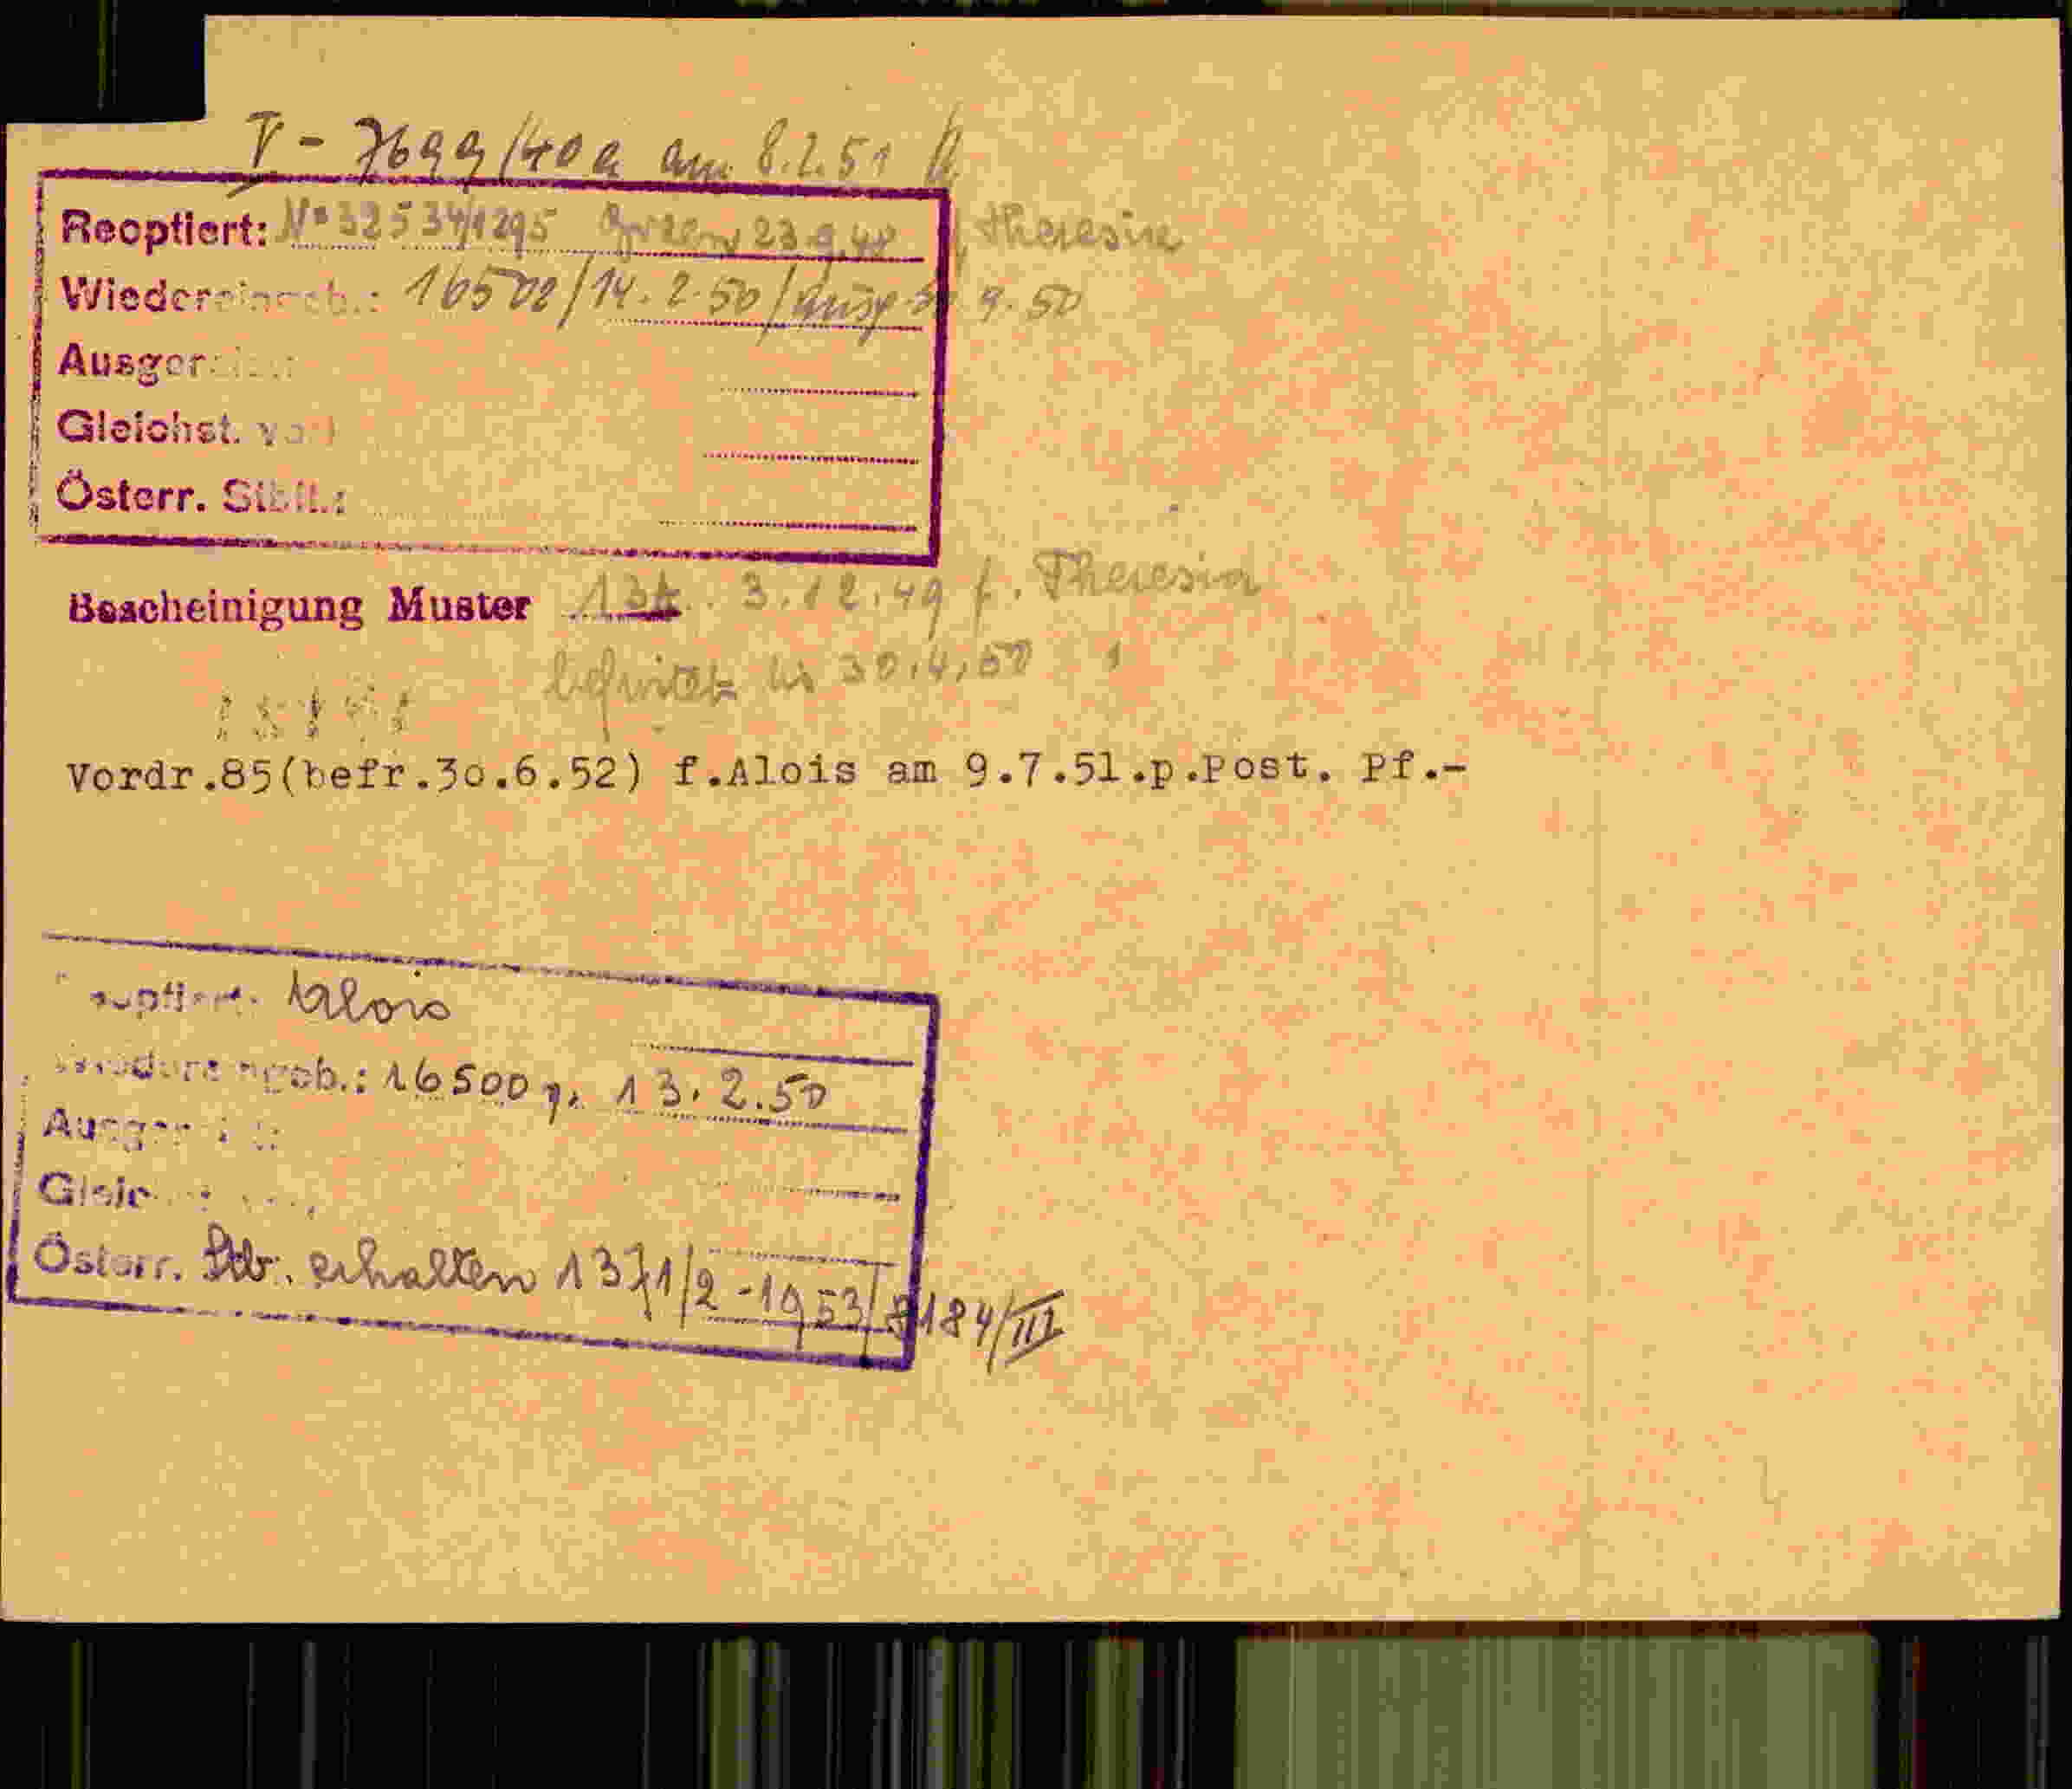 V - 7699/40a am 8.2.51
Reoptiert: Nº 32534/1295 Brixen 23.9.48 f. Theresia
Wiedereingeb.: 16502/14.2.50/ 9.50
Ausgereist:
Gleichst. von
Österr. Stbft.:
Bescheinigung Muster 13A. 3.12.49 f. Theresia
befristet bis 30.4.50
Vordr.85(befr.30.6.52) f.Alois am 9.7.51.p.Post. Pf.-
Reoptiert: Alois
Wiedereingeb.: 16500 13.2.50
Ausgereist:
Gleichst. von
Österr. Stb. erhalten 1371/2-1953/8184/III